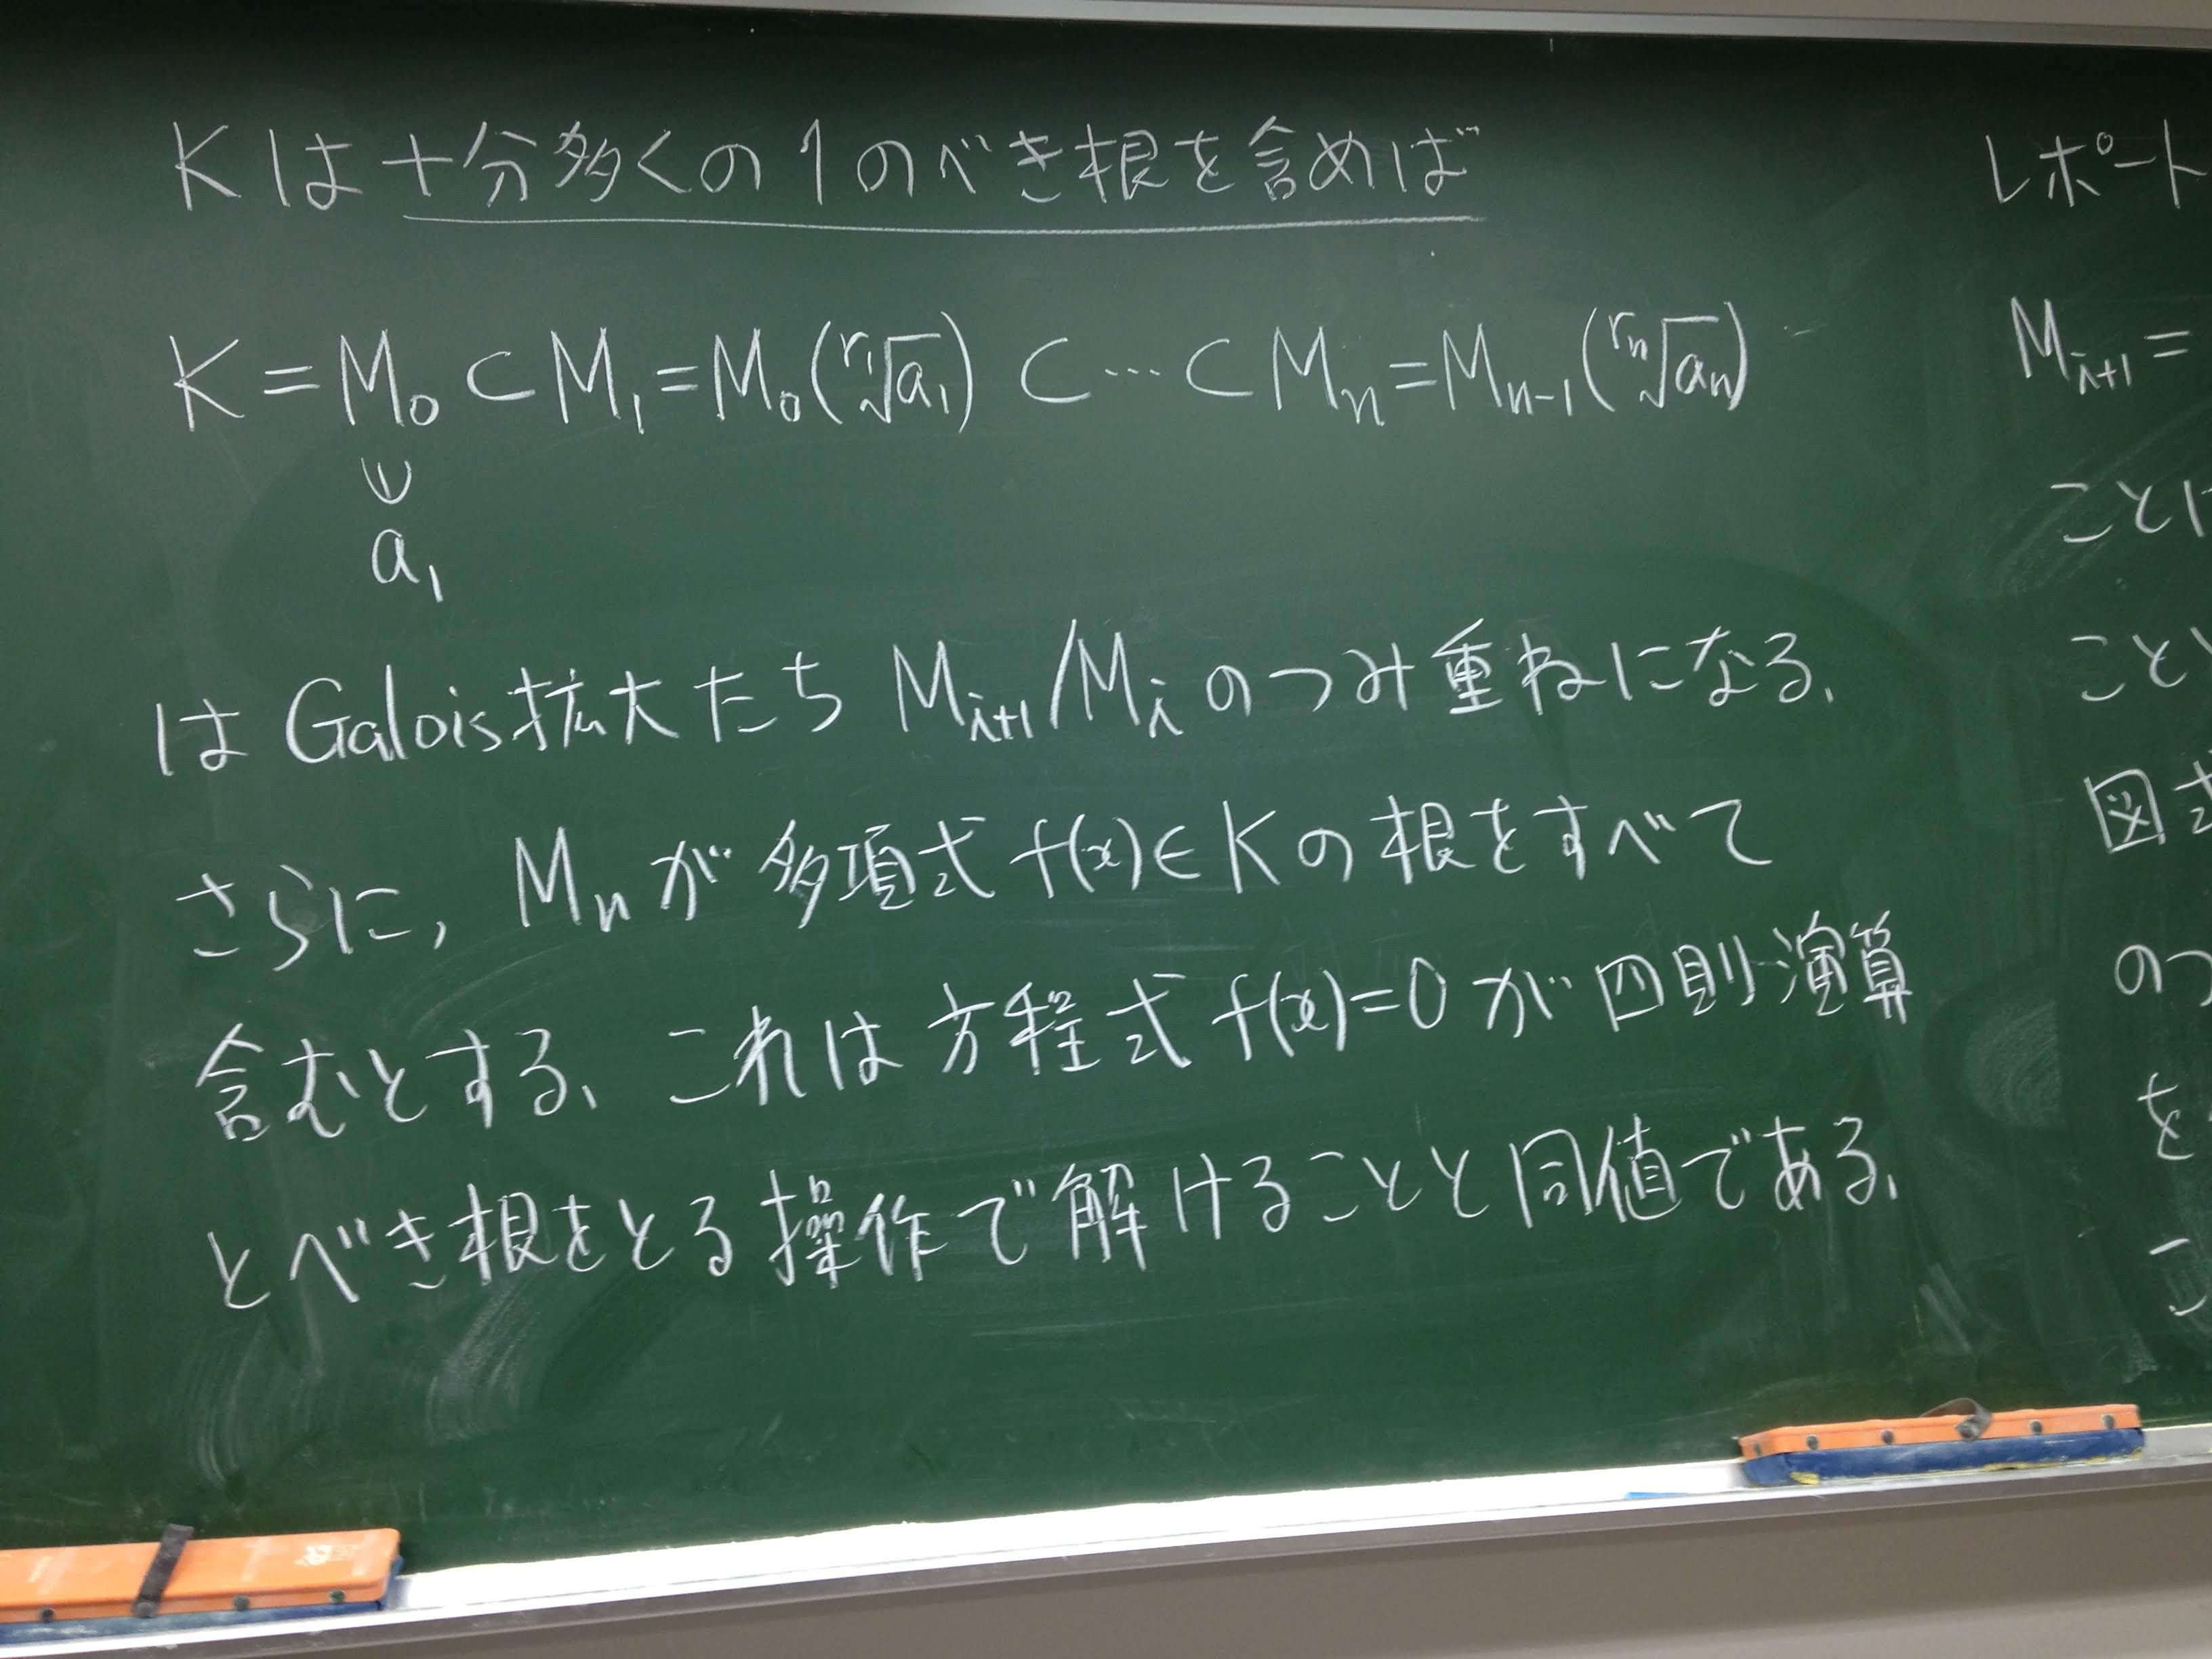 Kは十分多くの1のべき根を含めば
K = M₀ ⊂ M₁ = M₀(ʳ¹√a₁) ⊂ ⋯ ⊂ Mₙ = Mₙ₋₁(ʳⁿ√aₙ)
∪
a₁
は Galois拡大たち Mᵢ₊₁/Mᵢ のつみ重ねになる、
さらに, Mₙ が 多項式 f(x)∈K の 根をすべて
含むとする、これは 方程式 f(x)=0 が 四則演算
とべき根をとる 操作で 解けることと同値である、
レポート
Mᵢ₊₁=
ことに
こと
図式
のつ
を
こ